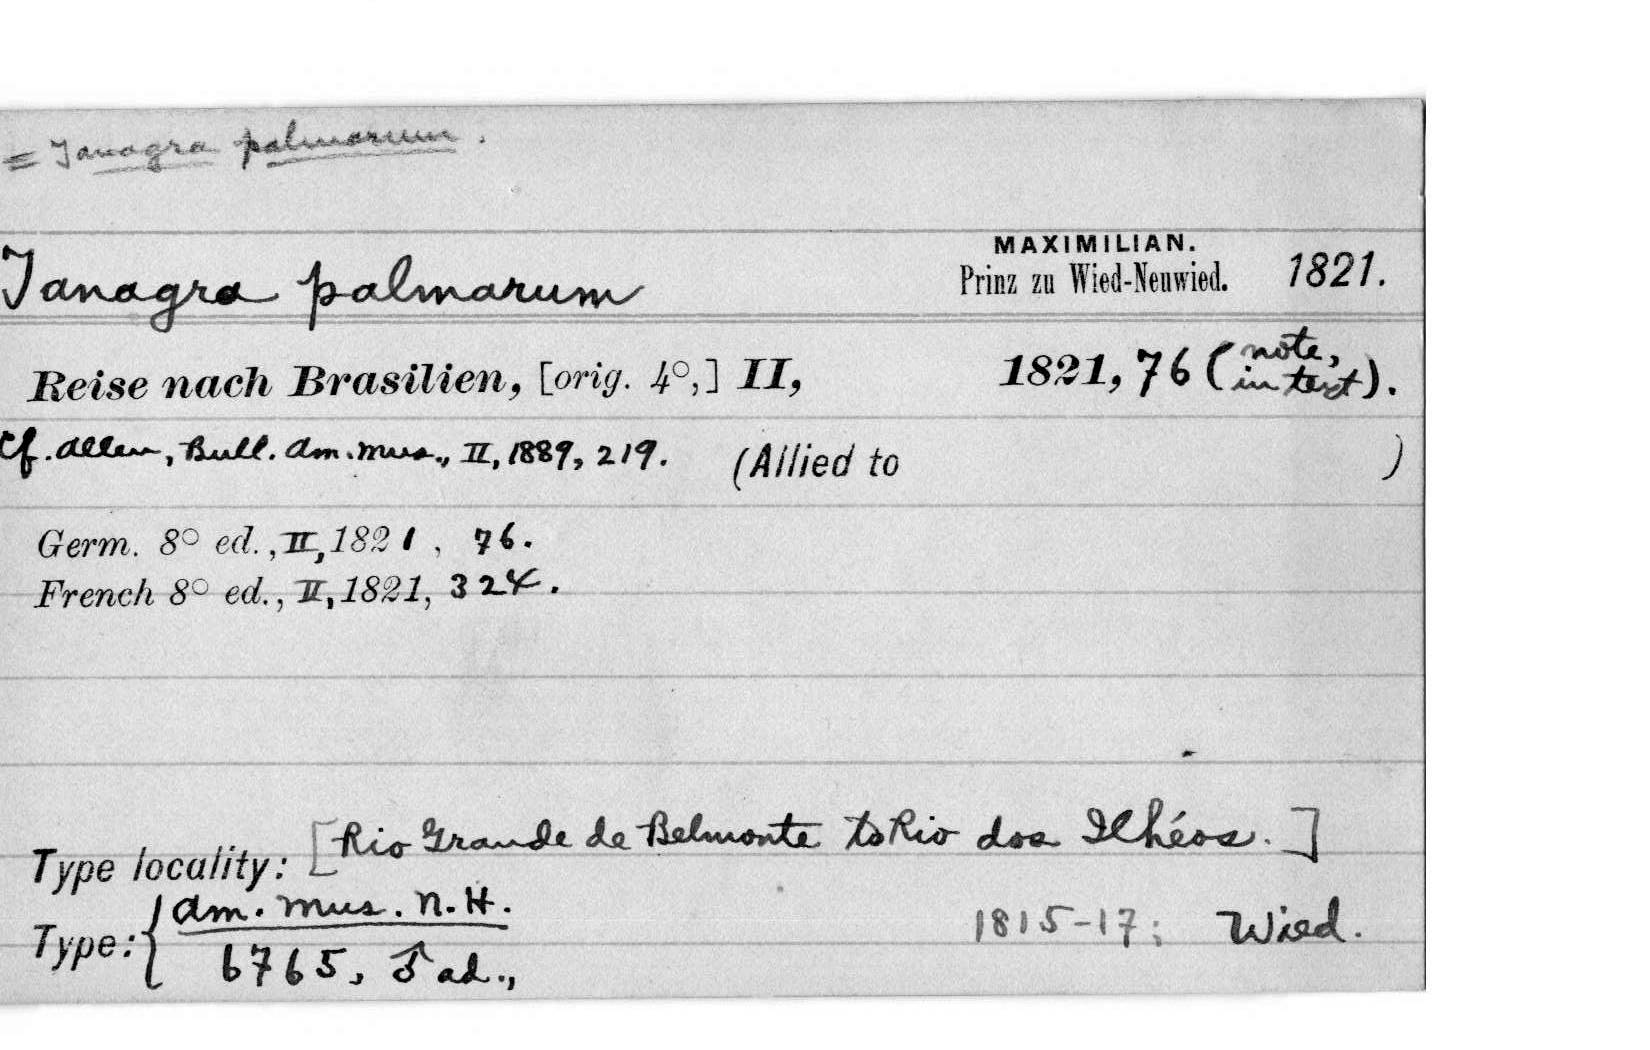 = Tanagra palmarum.
MAXIMILIAN.
Tanagra palmarum Prinz zu Wied-Neuwied. 1821.
Reise nach Brasilien, [orig. 4°,] II, 1821, 76 (note, in text).
Cf. Allen, Bull. Am. Mus., II, 1889, 219. (Allied to )
Germ. 8° ed., II, 1821, 76.
French 8° ed., II, 1821, 324.
Type locality: [Rio Grande de Belmonte to Rio dos Ilhéos.]
Type: { Am. Mus. N.H.
6765, ♂ ad., 1815-17; Wied.